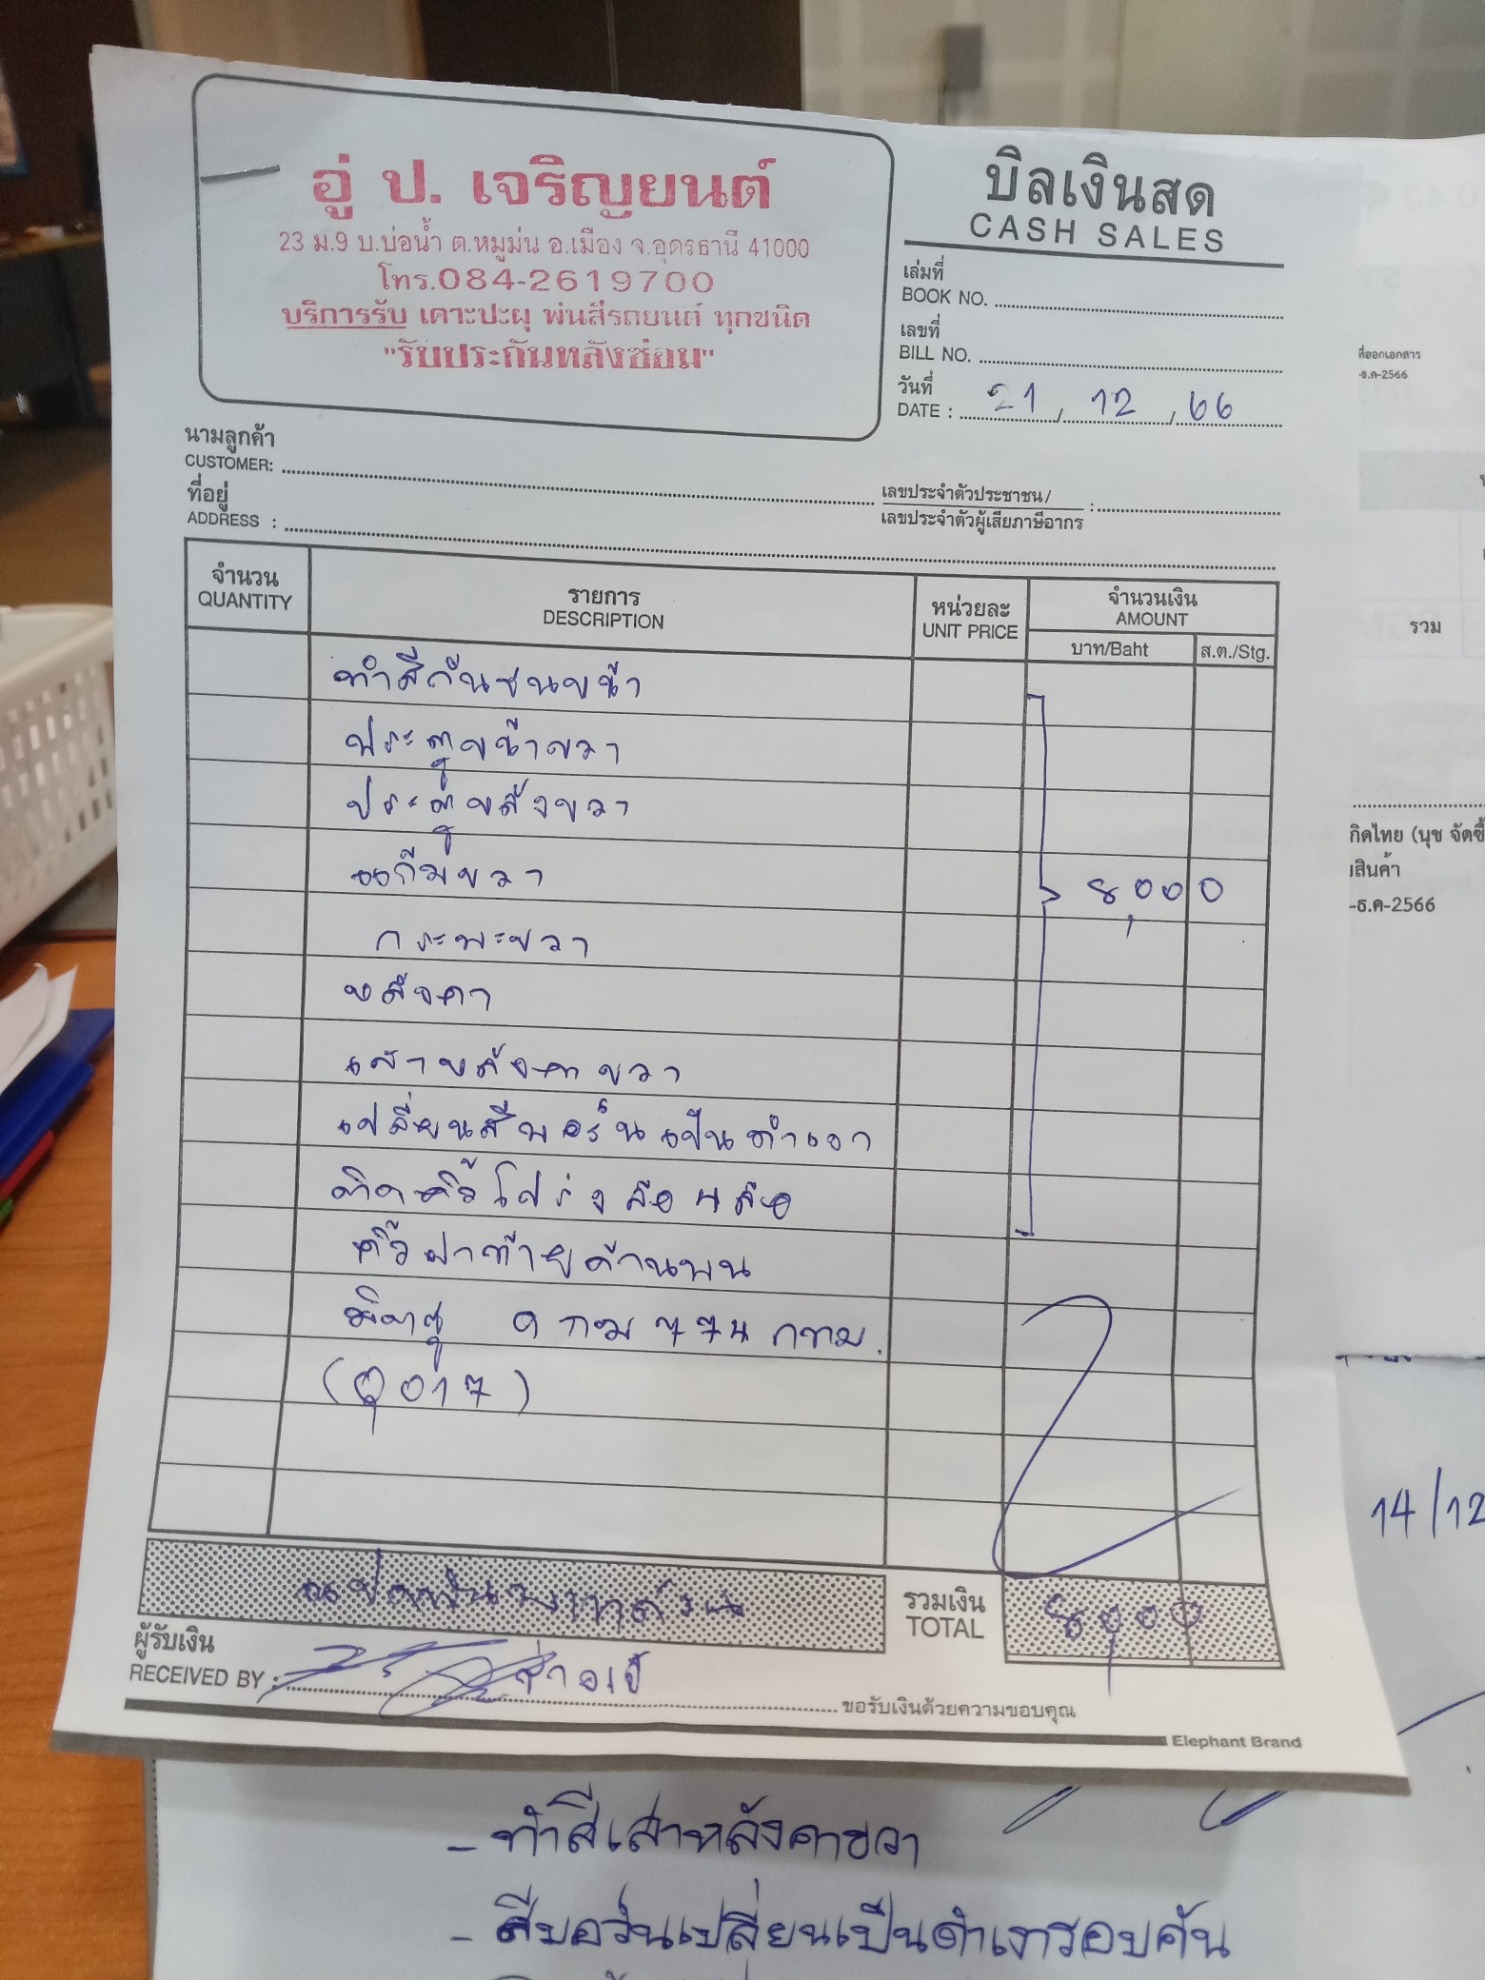 อู่ ป. เจริญยนต์
23 ม.9 บ.บ่อน้ำ ต.หมูม่น อ.เมือง จ.อุดรธานี 41000
โทร.084-2619700
บริการรับ เคาะปะผุ พ่นสีรถยนต์ ทุกชนิด
"รับประกันหลังซ่อม"
บิลเงินสด
CASH SALES
เล่มที่
BOOK NO.
เลขที่
BILL NO.
วันที่
DATE : 21 / 12 / 66
นามลูกค้า
CUSTOMER:
ที่อยู่
ADDRESS :
เลขประจำตัวประชาชน/
เลขประจำตัวผู้เสียภาษีอากร :
จำนวน
QUANTITY
รายการ
DESCRIPTION
หน่วยละ
UNIT PRICE
จำนวนเงิน
AMOUNT
บาท/Baht
ส.ต./Stg.
ทำสีกันชนหน้า
ประตูหน้าขวา
ประตูหลังขวา
แก้มขวา
กระบะขวา
หลังคา
เสาหลังคาขวา
เปลี่ยนสีบอร์นเป็นดำเงา
ติดคิ้วโป่งล้อ 4 ล้อ
คิ้วฝาท้ายด้านบน
8,000
กทม.
รวมเงิน
TOTAL
8,000
ผู้รับเงิน
RECEIVED BY :
ขอรับเงินด้วยความขอบคุณ
Elephant Brand
ที่ออกเอกสาร
-ธ.ค-2566
รวม
กิดไทย (นุช จัดซื้
สินค้า
-ธ.ค-2566
14/12
- ทำสีเสาหลังคาขวา
- สีบอร์นเปลี่ยนเป็นดำเงารอบคัน